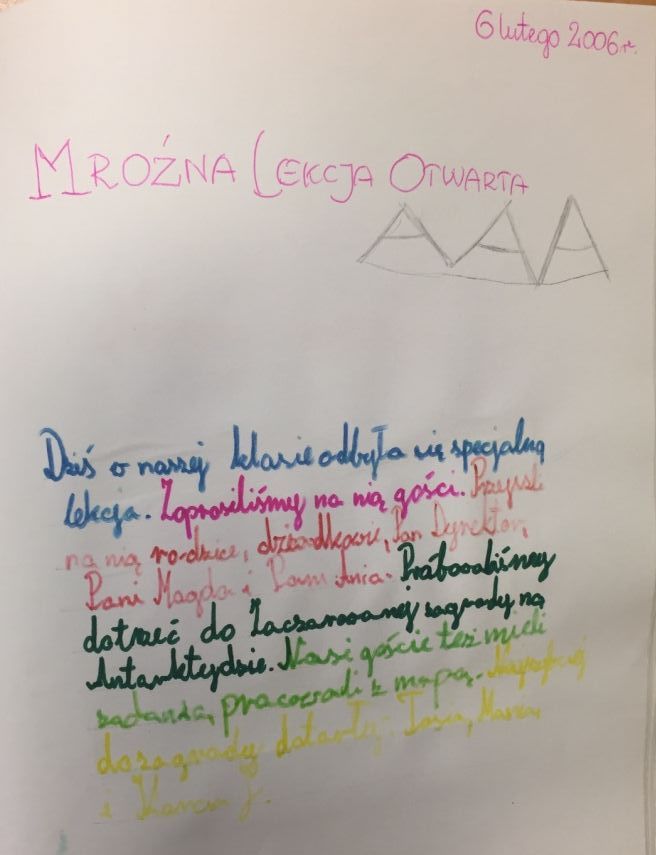 6 lutego 2006 r.
MROŹNA LEKCJA OTWARTA
Dziś w naszej klasie odbyła się specjalna
lekcja. Zaprosiliśmy na nią gości. Przyszli
na nią rodzice, dziadkowie, Pan Dyrektor,
Pani Magda i Pani Ania. Próbowaliśmy
dotrzeć do Zaczarowanej zagrody na
Antarktydzie. Nasi goście też mieli
zadania, pracowali z mapą. Najszybciej
do zagrody dotarły: Tosia,
i